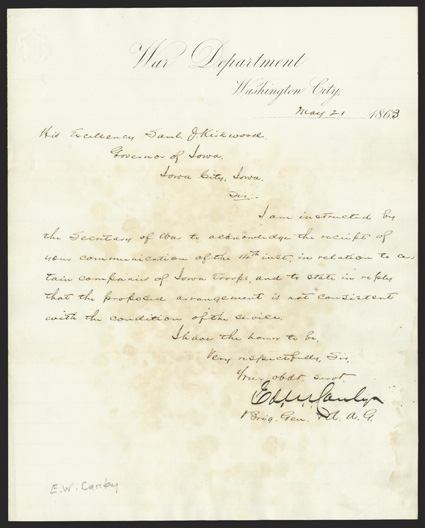 War Department
Washington City,
May 21 1863
His Excellency Saml J Kirkwood
Governor of Iowa,
Iowa City, Iowa.
Sir:
I am instructed by
the Secretary of War to acknowledge the receipt of
your communication of the 14th inst, in relation to cer
tain companies of Iowa troops, and to state in reply
that the proposed arrangement is not consistent
with the condition of the service.
I have the honor to be,
Very respectfully, Sir,
Your obdt. servt.
Ed. Canby
Brig. Gen. A. A. G.
E.W. Canby